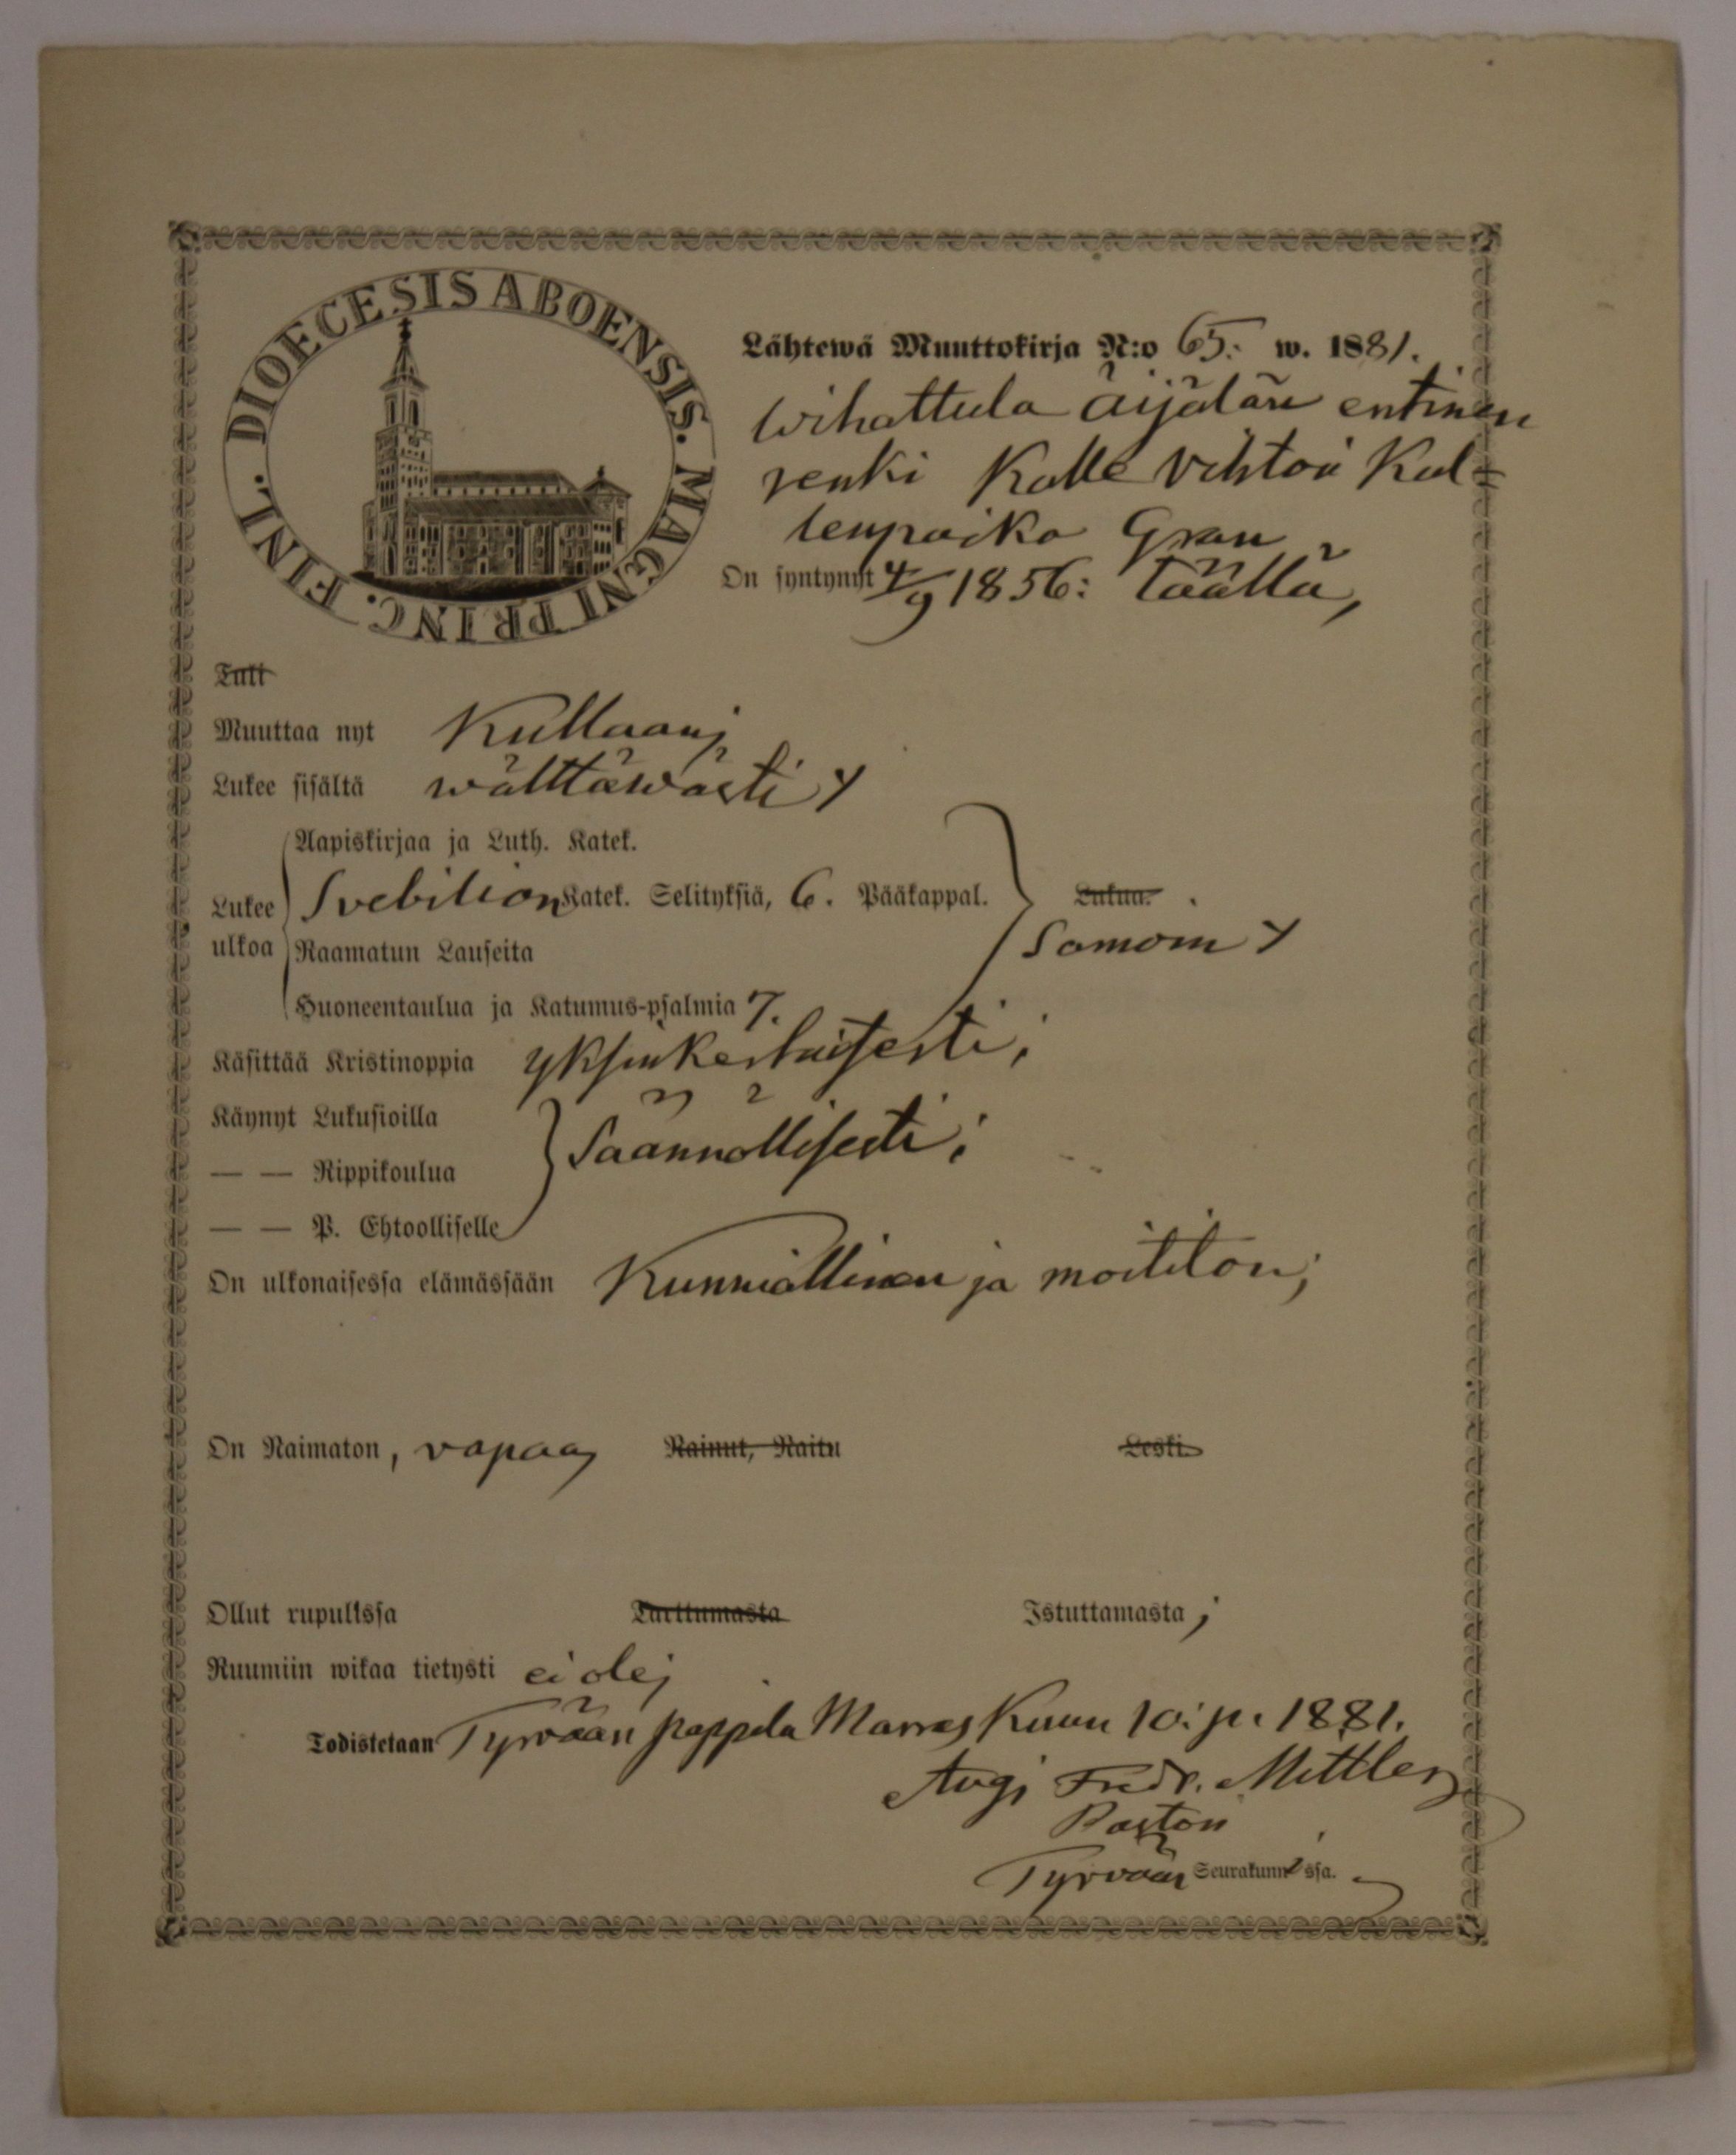 DIOECESIS ABOENSIS. MAGNI PRINC. FINL.
Lähtewä Muuttokirja N:o 65. w. 1881.
Wihattula Äijälän entinen
renki Kalle Vihtori Kal=
lenpoika Gran
On syntynyt 4/9 1856: täällä,
Tuli
Muuttaa nyt Kullaan;
Lukee sisältä wälttäwästi;
Aapiskirjaa ja Luth. Katek.
Lukee Svebilion Katek. Selityksiä, 6. Pääkappal. Lukua.
ulkoa Raamatun Lauseita Samoin;
Huoneentaulua ja Katumus-psalmia 7.
Käsittää Kristinoppia yksinkertaisesti;
Käynyt Lukusioilla
— — Rippikoulua Säännöllisesti;
— — P. Ehtoolliselle
On ulkonaisessa elämässään Kunniallinen ja moititon;
On Naimaton, vapaa; Nainut, Naitu Leski.
Ollut rupulissa Tarttumasta Istuttamasta;
Ruumiin wikaa tietysti ei ole;
Todistetaan Tyrvään pappila Marras Kuun 10. p. 1881.
Aug. Fredr. Mittler
Pastori
Tyrvään Seurakunnassa.